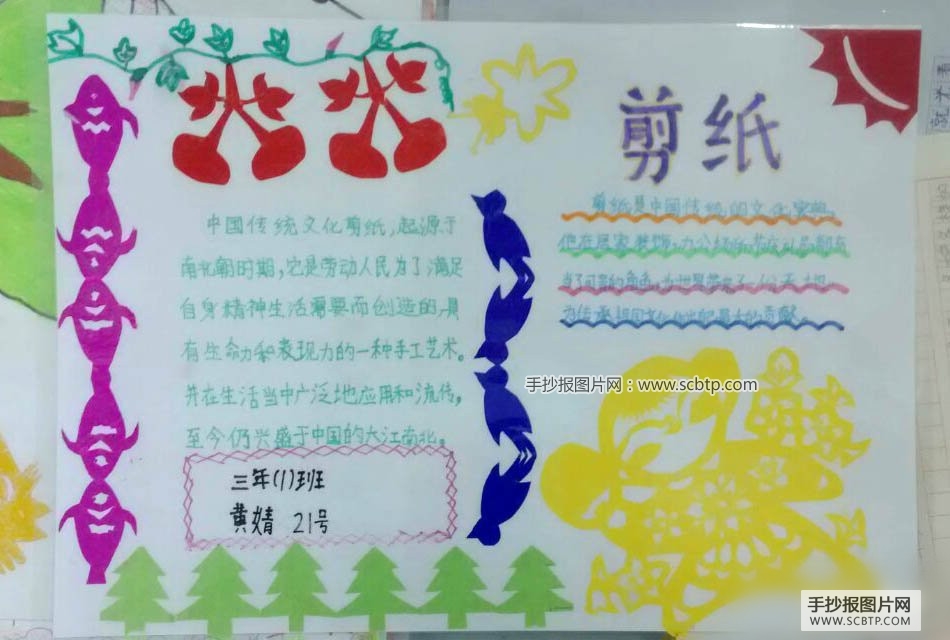 剪纸
中国传统文化剪纸,起源于
南北朝时期,它是劳动人民为了满足
自身精神生活需要而创造的,具
有生命力和表现力的一种手工艺术。
并在生活当中广泛地应用和流传,
至今仍兴盛于中国的大江南北。
三年(1)班
黄婧 21号
剪纸是中国传统的文化
他在居家装饰,办公场所
为传承祖国文化作出
手抄报图片网:www.scbtp.com
手抄报图片网
WWW.SCBTP.COM